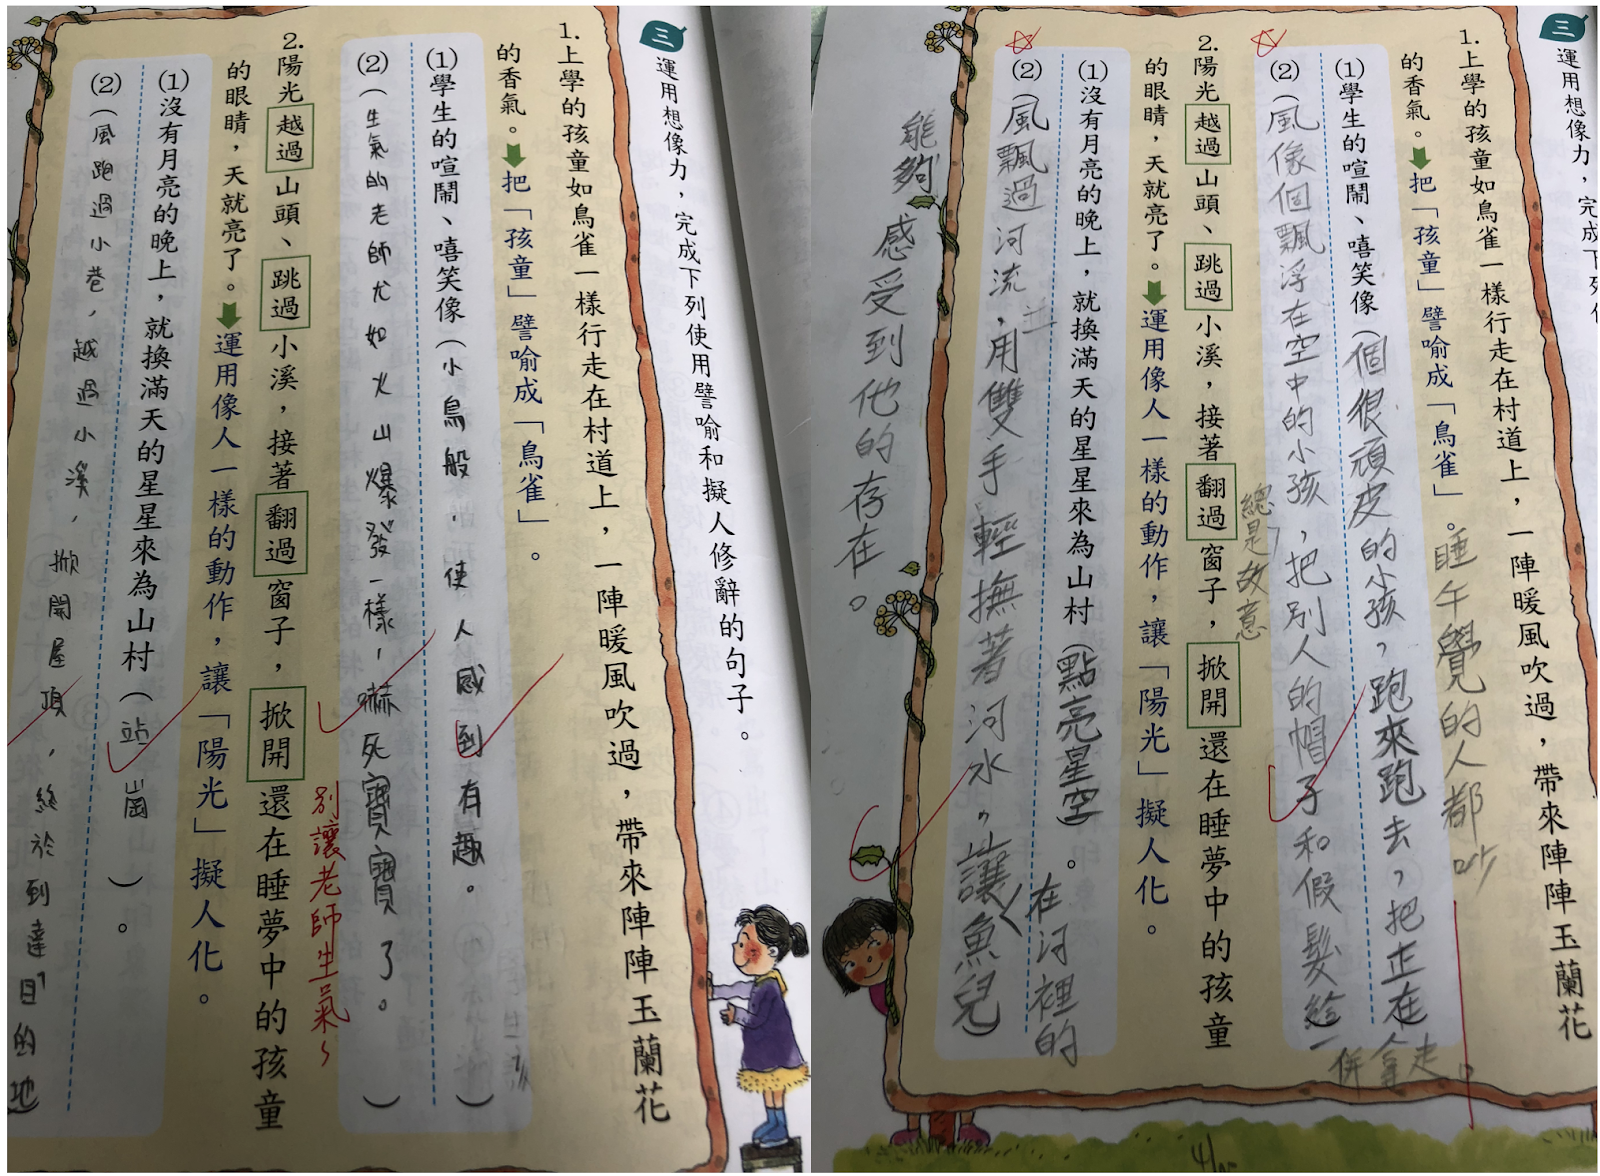 三
運用想像力，完成下列使用譬喻和擬人修辭的句子。
1.上學的孩童如鳥雀一樣行走在村道上，一陣暖風吹過，帶來陣陣玉蘭花
的香氣。把「孩童」譬喻成「鳥雀」。
(1)學生的喧鬧、嘻笑像(小鳥般，使人感到有趣。)
(2)(生氣的老師尤如火山爆發一樣，嚇死寶寶了。)
別讓老師生氣～
2.陽光越過山頭、跳過小溪，接著翻過窗子，掀開還在睡夢中的孩童
的眼睛，天就亮了。運用像人一樣的動作，讓「陽光」擬人化。
(1)沒有月亮的晚上，就換滿天的星星來為山村(站崗)。
(2)(風跑過小巷，越過小溪，掀開屋頂，終於到達目的地)
三
運用想像力，完
成下列
1.上學的孩童如鳥雀一樣行走在村道上，一陣暖風吹過，帶來陣陣玉蘭花
的香氣。把「孩童」譬喻成「鳥雀」。
(1)學生的喧鬧、嘻笑像(個很頑皮的小孩，跑來跑去，把正在
睡午覺的人都吵
(2)(風像個飄浮在空中的小孩，把別人的帽子和假髮給一
併拿走。
總是故意
2.陽光越過山頭、跳過小溪，接著翻過窗子，掀開還在睡夢中的孩童
的眼睛，天就亮了。運用像人一樣的動作，讓「陽光」擬人化。
(1)沒有月亮的晚上，就換滿天的星星來為山村(點亮星空)。
(2)(風飄過河流，並用雙手輕撫著河水，讓魚兒)
在河裡的
能夠感受到他的存在。